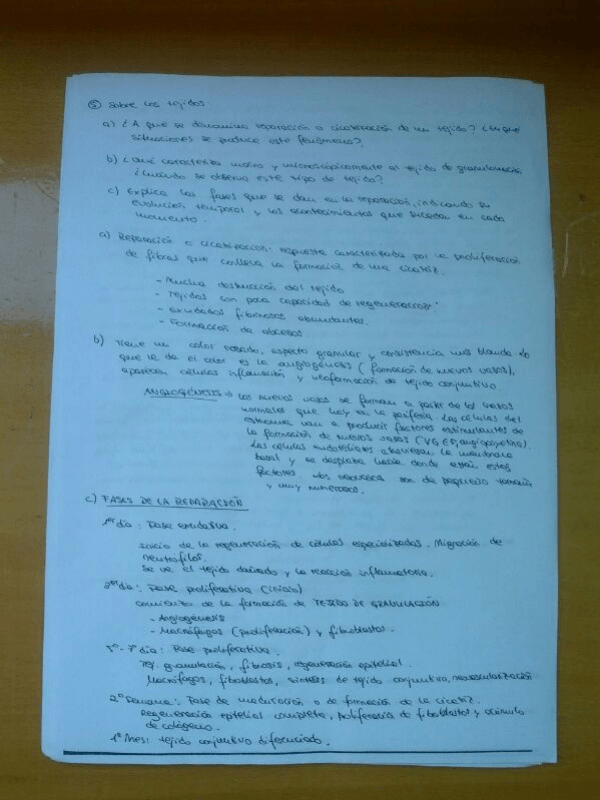 ⑤ Sobre los tejidos:
a) ¿A qué se denomina reparación o cicatrización de un tejido? ¿En qué
situaciones se produce este fenómeno?
b) ¿Qué caracteriza macro y microscópicamente al tejido de granulación
¿Cuándo se observa este tipo de tejido?
c) Explica las fases que se dan en la reparación, indicando su
evolución temporal y los acontecimientos que sucedan en cada
momento.
a) Reparación o cicatrización: respuesta caracterizada por la proliferación
de fibras que conlleva la formación de una cicatriz.
- Mucha destrucción del tejido
- Tejidos con poca capacidad de regeneración
- Exudados fibrinosos abundantes.
- Formación de abscesos
b) Tiene un color rosado, aspecto granular y consistencia más blanda. Lo
que le da el color es la angiogénesis (formación de nuevos vasos),
aparecen células inflamación y neoformación de tejido conjuntivo
ANGIOGÉNESIS → Los nuevos vasos se forman a partir de los vasos
normales que hay en la periferia. Las células del
estroma van a producir factores estimulantes de
la formación de nuevos vasos (VGEF, angiopoyetina).
Las células endoteliales atraviesan la membrana
basal y se desplaza hacia donde están estos
factores. Los vasos son de pequeño tamaño
y muy numerosos.
c) FASES DE LA REPARACIÓN
1er día: Fase exudativa.
Inicio de la regeneración de células especializadas. Migración de
neutrófilos.
Se ve el tejido dañado y la reacción inflamatoria.
día: Fase proliferativa (inicio)
comienzo de la formación de TEJIDO DE GRANULACIÓN
- Angiogénesis
- Macrófagos (proliferación) y fibroblastos.
3º-7º día: Fase proliferativa.
Tej. granulación, fibrosis, regeneración epitelial.
Macrófagos, fibroblastos, síntesis de tejido conjuntivo, neovascularización
2ª Semana: Fase de maduración o de formación de la cicatriz.
Regeneración epitelial completa, proliferación de fibroblastos y acúmulo
de colágeno.
1er Mes: tejido conjuntivo diferenciado.